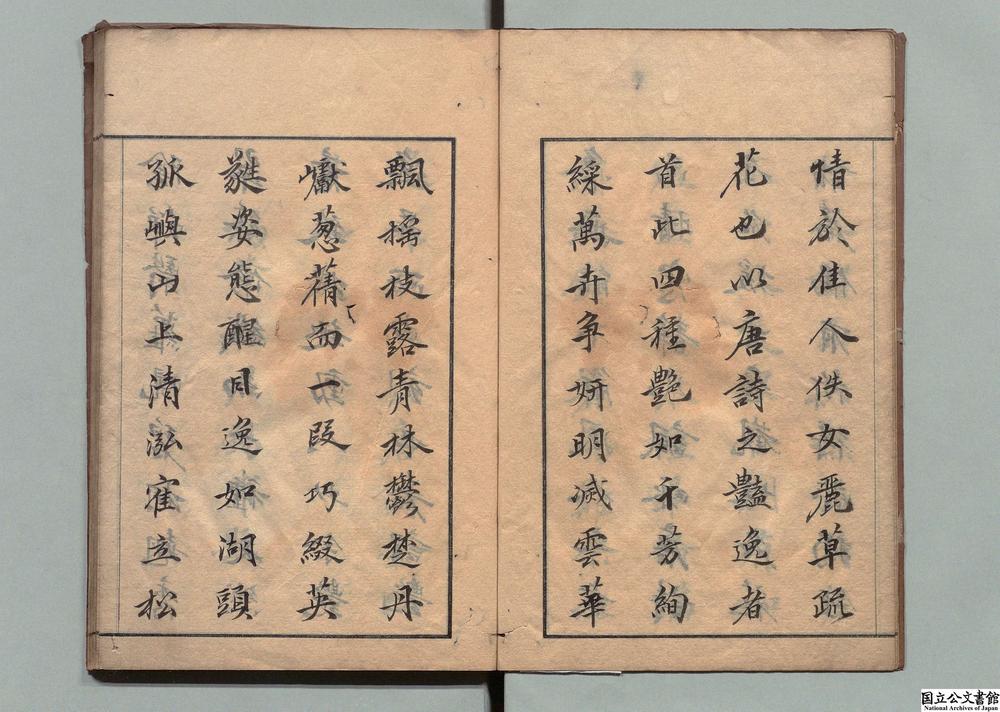 情於佳人佚女麗草疏
花也以唐詩之豔逸者
首此四種艶如千芳絢
綵萬卉爭妍明滅雲華
飄搖枝露青林鬱楚丹
巘葱蒨而一段巧綴英
蕤姿態醒目逸如湖頭
孤嶼山上清泓寉立松
国立公文書館
National Archives of Japan